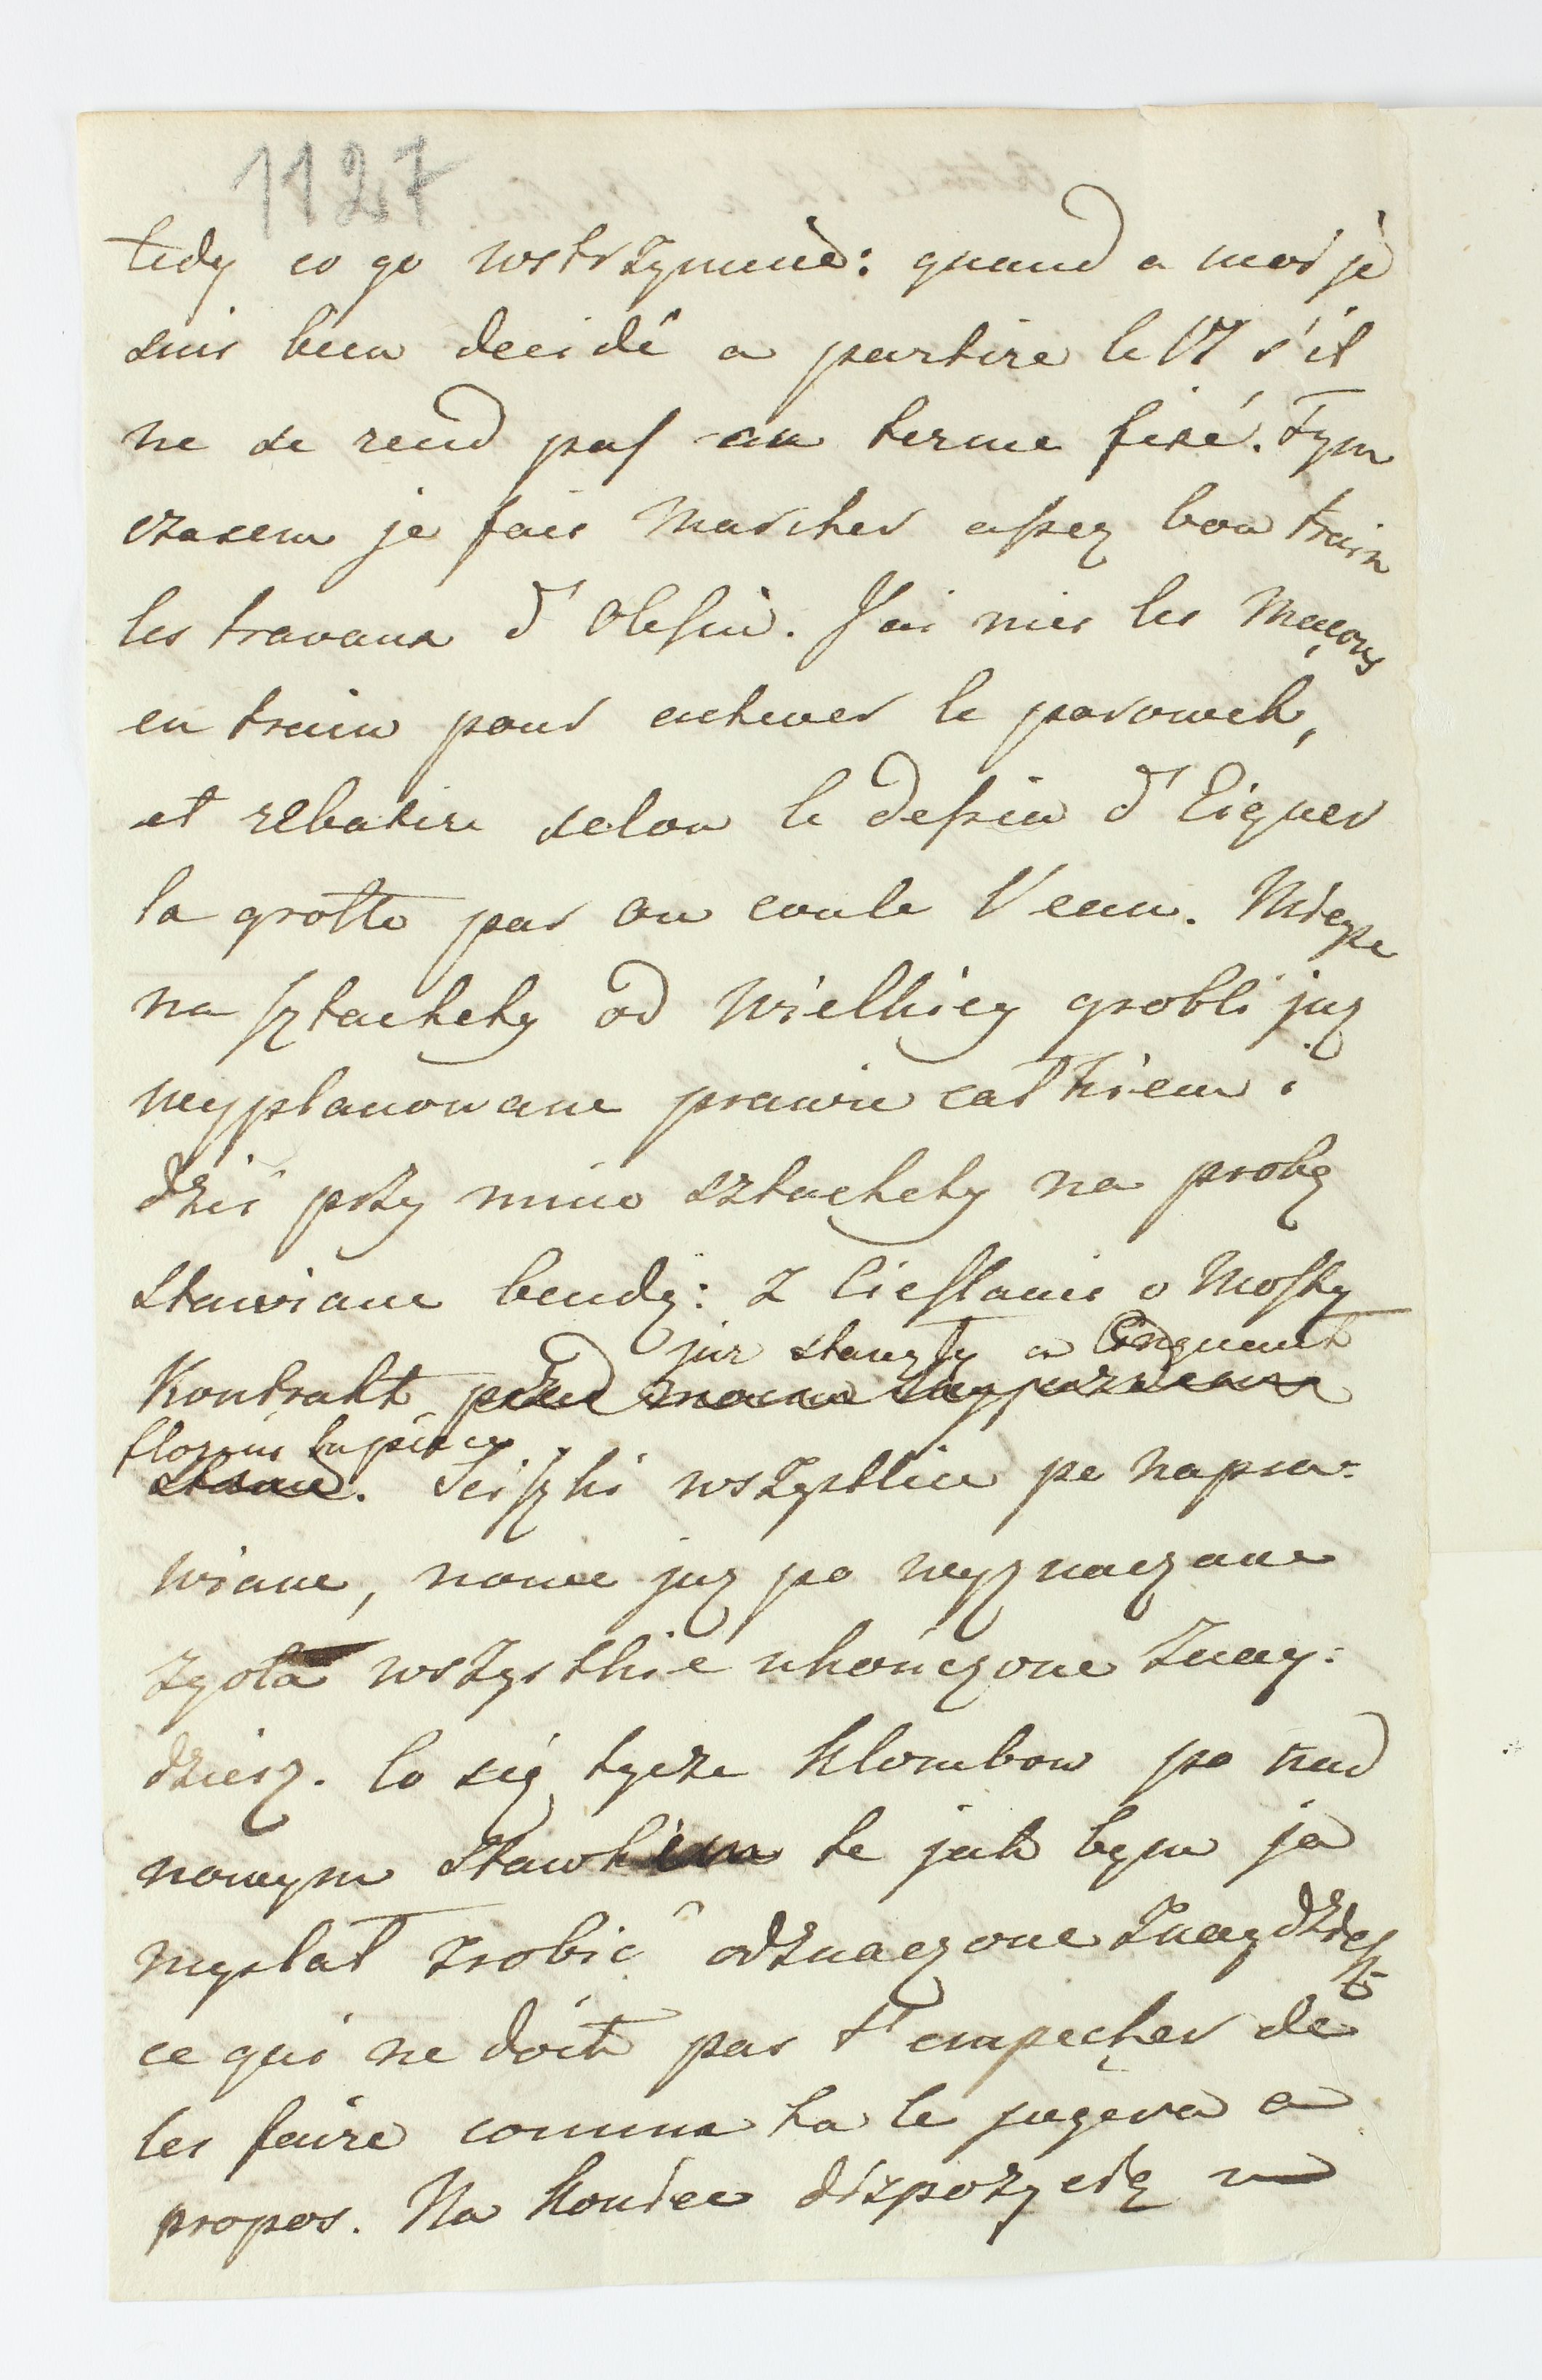 1127
tedy co go wstrzymuie: quand a moi je
suis bien decidé a partire le 17 s'il
ne se rend pas au terme fixé. Tym
czasem je fais marcher assez bon train
les travaux d'Olesin. J'ai mis les Maçons
en train pour achever le parowek,
et rebatire selon le dessin d'Eigner
la grotte par ou coule l'eau. Mieysce
na sztachety od Wielkiey grobli juz
wyplanowane prawie całkiem i
dziś przy mnie sztachety na probę
stawiane bendą: z Cieslami o Mosty
już stanęły a Cinquante
Kontrakt przed
florins la pièce
Sciszki wszystkie po napra-
wiane, nowe juz po wyznaczane
zgoła wszystkie ukończone znay-
dziesz. Co się tycze klombow po nad
nowym Stawkiem te jak bym ja
myslał zrobić odznaczone znaydziesz
ce qui ne doit pas t'empecher de
les faire comme ta le jugera a
propos. Na koniec dizpozycię